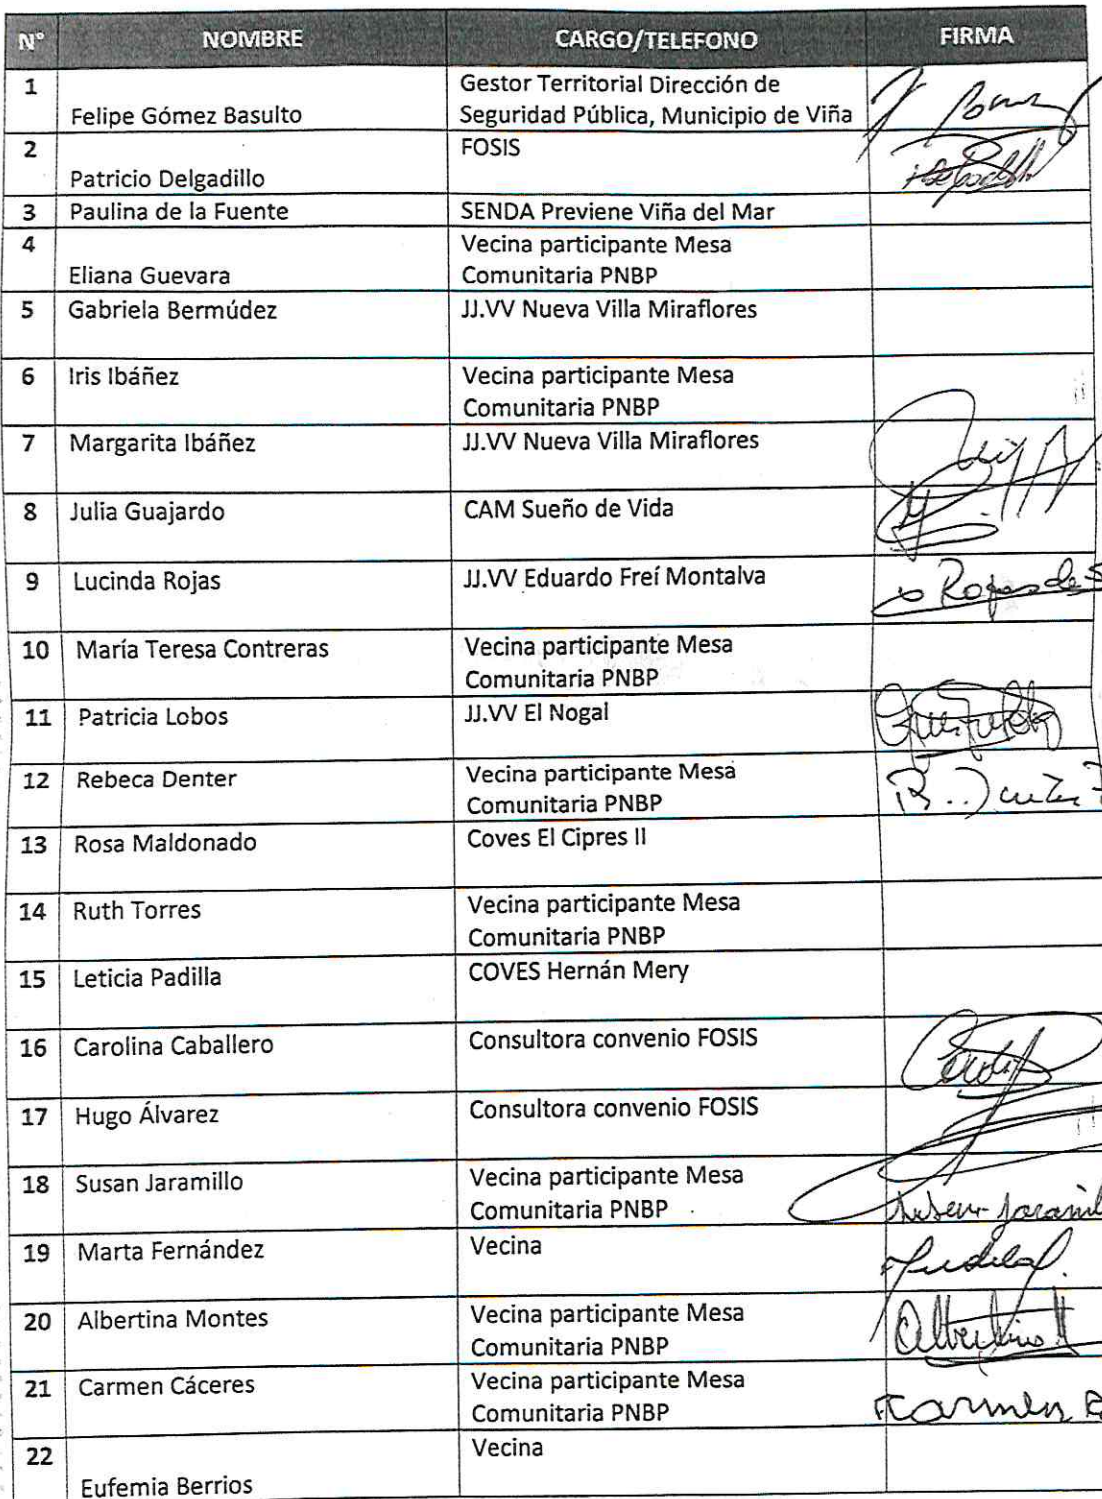 N° NOMBRE CARGO/TELEFONO FIRMA
1 Felipe Gómez Basulto Gestor Territorial Dirección de
Seguridad Pública, Municipio de Viña
2 Patricio Delgadillo FOSIS
3 Paulina de la Fuente SENDA Previene Viña del Mar
4 Eliana Guevara Vecina participante Mesa
Comunitaria PNBP
5 Gabriela Bermúdez JJ.VV Nueva Villa Miraflores
6 Iris Ibáñez Vecina participante Mesa
Comunitaria PNBP
7 Margarita Ibáñez JJ.VV Nueva Villa Miraflores
8 Julia Guajardo CAM Sueño de Vida
9 Lucinda Rojas JJ.VV Eduardo Freí Montalva Rojas de S
10 María Teresa Contreras Vecina participante Mesa
Comunitaria PNBP
11 Patricia Lobos JJ.VV El Nogal
12 Rebeca Denter Vecina participante Mesa
Comunitaria PNBP
13 Rosa Maldonado Coves El Cipres II
14 Ruth Torres Vecina participante Mesa
Comunitaria PNBP
15 Leticia Padilla COVES Hernán Mery
16 Carolina Caballero Consultora convenio FOSIS
17 Hugo Álvarez Consultora convenio FOSIS
18 Susan Jaramillo Vecina participante Mesa
Comunitaria PNBP
19 Marta Fernández Vecina
20 Albertina Montes Vecina participante Mesa
Comunitaria PNBP
21 Carmen Cáceres Vecina participante Mesa
Comunitaria PNBP Carmen
22 Eufemia Berrios Vecina